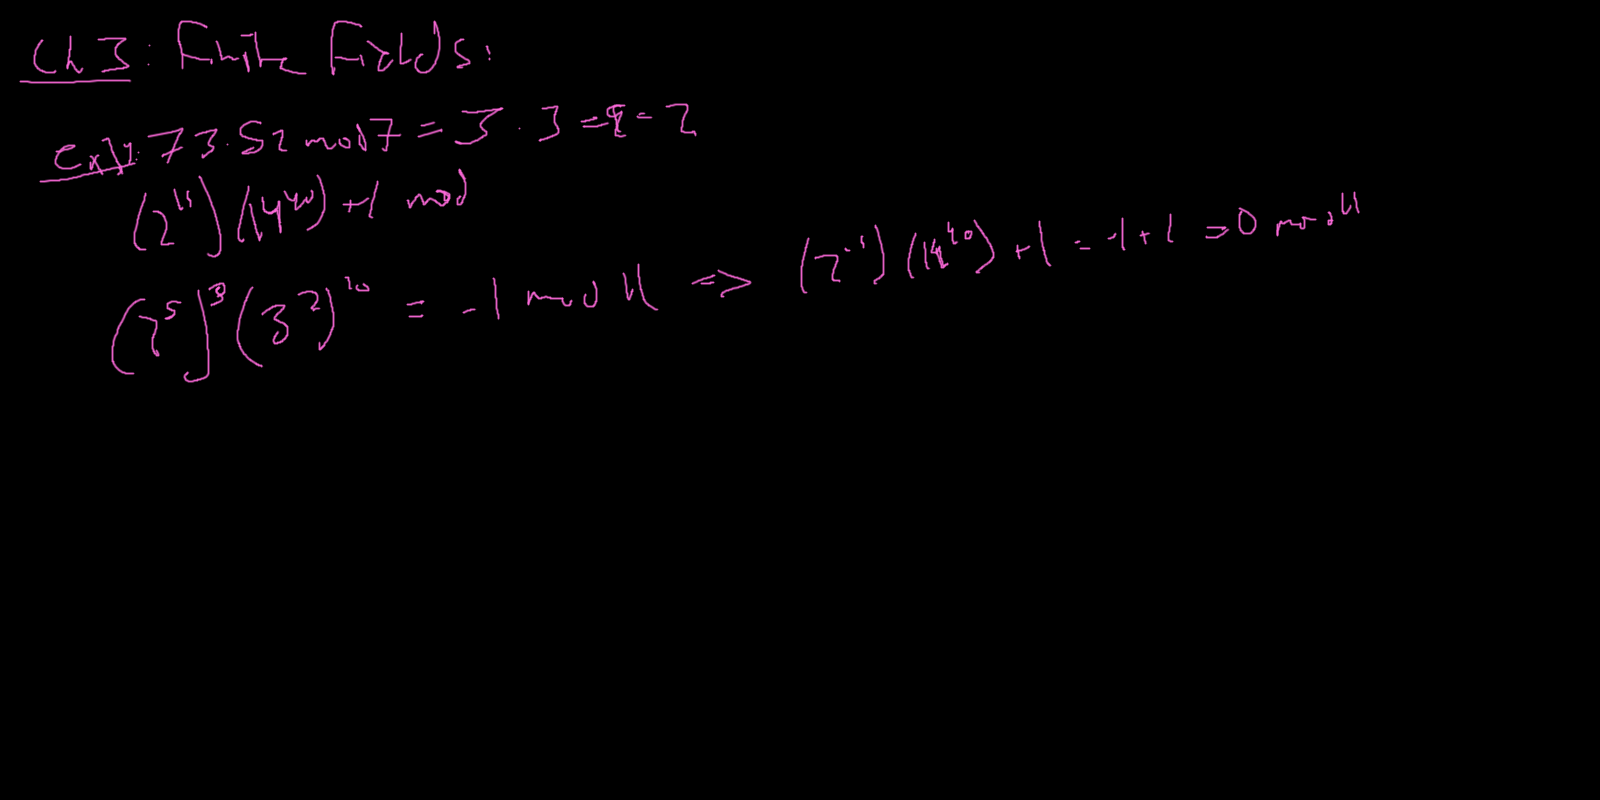 Ch 3: Finite Fields:
ex1: 73.52 mod 7 = 3 . 3 = 9 = 2
(2^15)(14^40)+1 mod
(2^5)^3 (3^2)^20 = -1 mod 11 => (2^15)(14^40)+1 = -1+1 = 0 mod 11